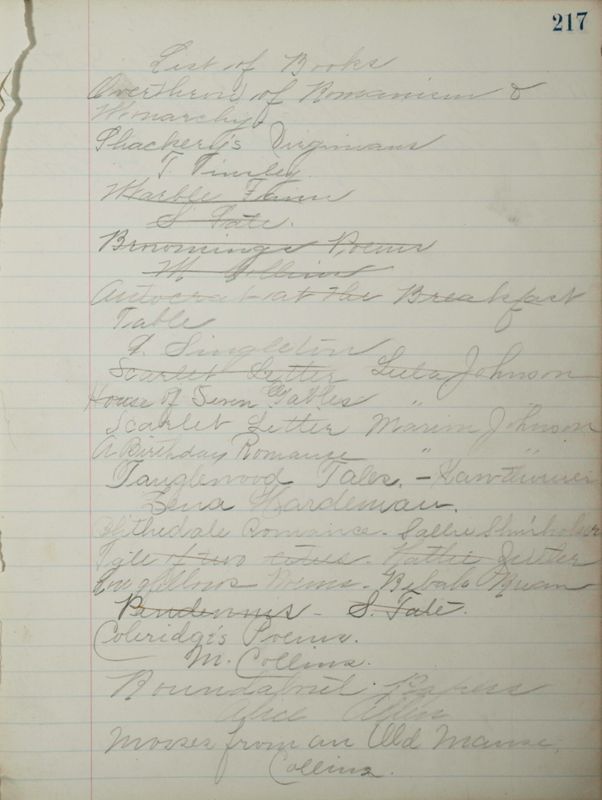 217
List of Books
Overthrow of Romanism &
Monarchy
Thackery's Virginians
T. Tinsley
Marble Faun
S. Tate.
Brownings Poems
M. Collins
Autocrat at the Breakfast
Table
Singleton
Scarlet Letter Lula Johnson
House of Seven Gables "
Scarlet Letter Marion Johnson
A Birthday Romance " "
Tanglewood Tales, - Hawthorne
Lena Hardeman.
Blythedale Romance. Sallie
Tale of two cities. Kathie
Longfellows Poems.
Pendennis - S. Tate.
Coleridge's Poems.
M. Collins.
Roundabout Papers
Alice
Mosses from an Old Manse,
Collins.